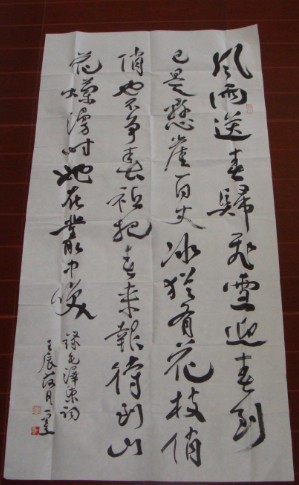 風雨送春歸飛雪迎春到
已是懸崖百丈冰猶有花枝俏
俏也不爭春祗把春來報待到山
花爛漫時她在叢中笑
錄毛澤東詞
壬辰
月